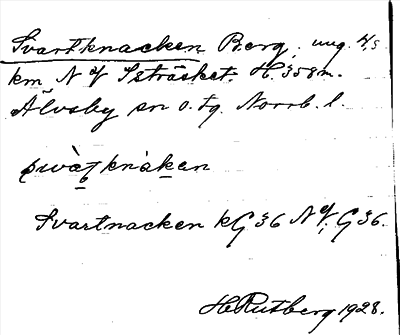 Svartknacken Berg, ung. 4,5
km N of Isträsket. H. 358 m.
Älvsby sn o. tg. Norrb. l.
swàt̠knàk̠en
Svartnacken kG36 NV, G36.
H Rutberg 1928.